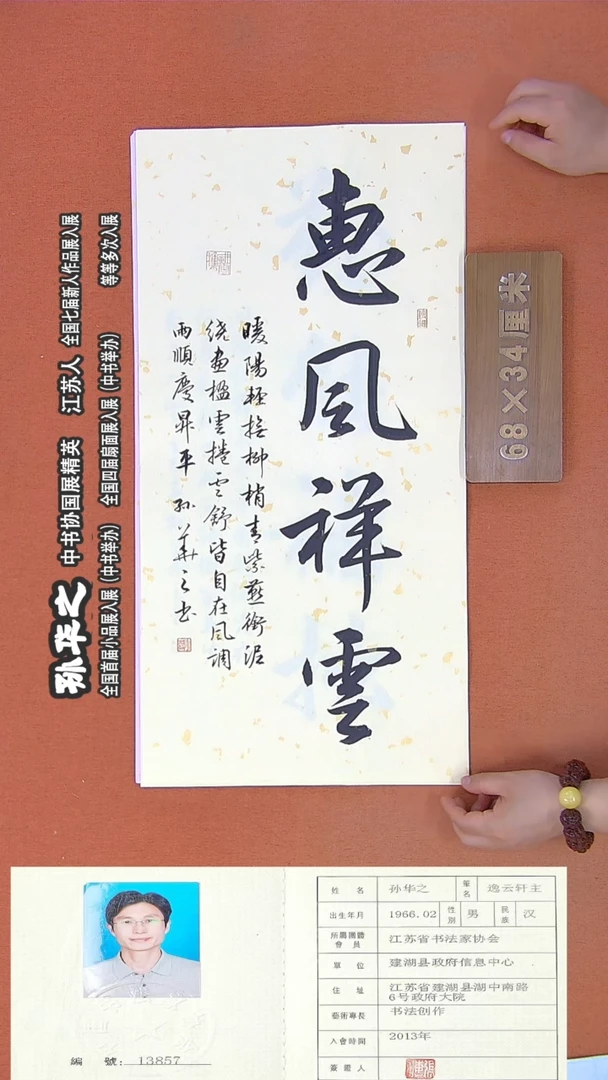 惠风祥雲
暖陽輕拾柳梢青紫燕銜泥
绕畫楹雲捲雲舒皆自在风調
雨順慶昇平 孙華之书
68×34厘米
孙华之 中书协国展精英 江苏人 全国七届新人作品展入展
全国首届小品展入展（中书举办） 全国四届扇面展入展（中书举办） 等等多次入展
姓名 孙华之 笔名 逸云轩主
出生年月 1966.02 性別 男 民族 汉
所屬團體會員 江苏省书法家协会
單位 建湖县政府信息中心
住址 江苏省建湖县湖中南路6号政府大院
藝術專長 书法创作
入會時間 2013年
簽證人
編號：13857